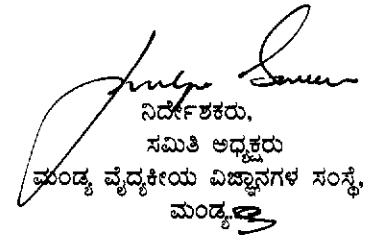 ನಿರ್ದೇಶಕರು,
ಸಮಿತಿ ಅಧ್ಯಕ್ಷರು
ಮಂಡ್ಯ ವೈದ್ಯಕೀಯ ವಿಜ್ಞಾನಗಳ ಸಂಸ್ಥೆ,
ಮಂಡ್ಯ.